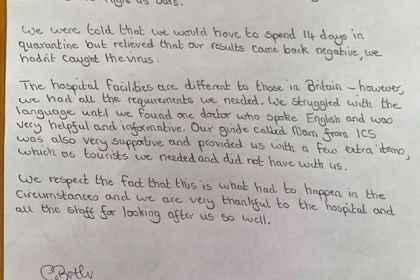 night as ours.
we were told that we would have to spend 14 days in
quarantine but relieved that our results came back negative, we
hadn't caught the virus.
The hospital facilities are different to those in Britain - however,
we had all the requirements we needed. We struggled with the
language until we found one doctor who spoke English and was
very helpful and informative. Our guide called Nam from ICS
was also very supportive and provided us with a few extra items,
which as tourists we needed and did not have with us.
We respect the fact that this is what had to happen in the
circumstances and we are very thankful to the hospital and
all the staff for looking after us so well.